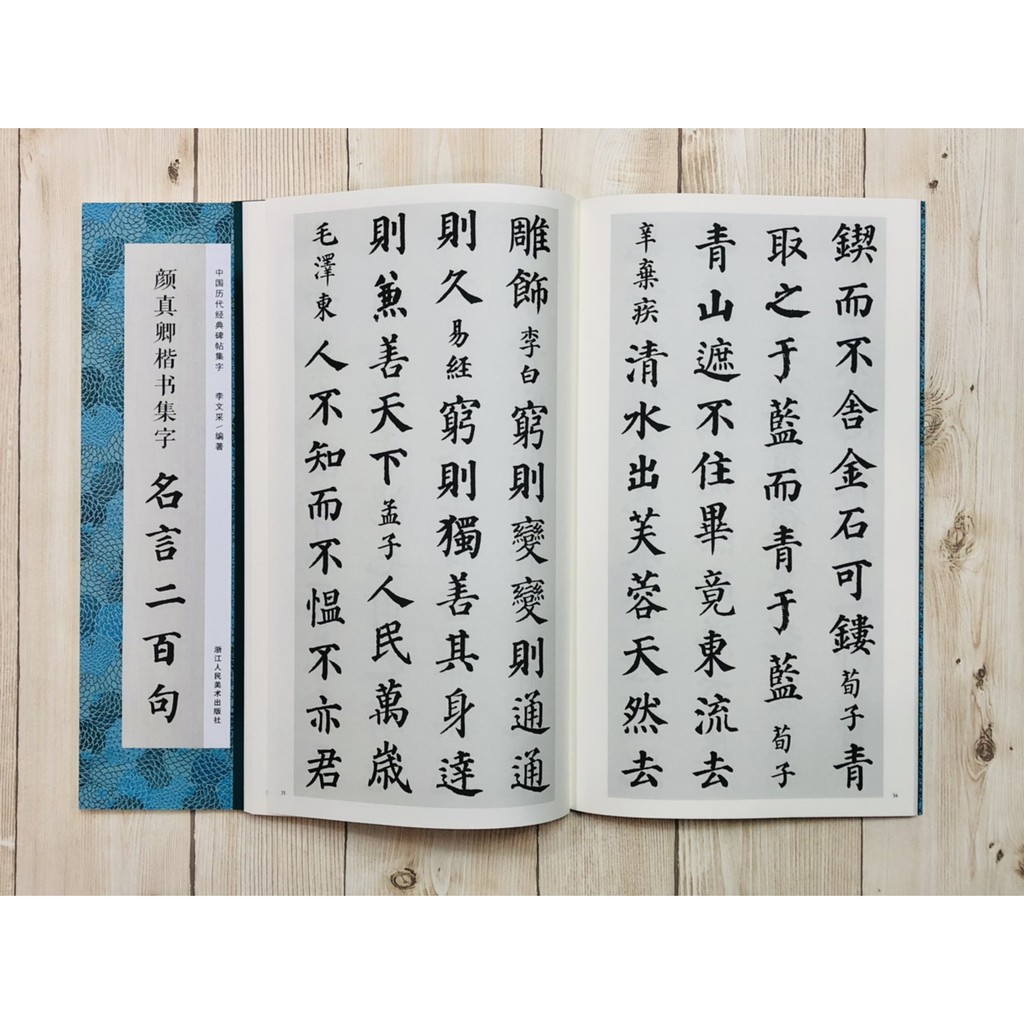 鍥而不舍金石可鏤 荀子 青
取之于藍而青于藍 荀子
青山遮不住畢竟東流去
辛棄疾 清水出芙蓉天然去
雕飾 李白 窮則變變則通通
則久 易経 窮則獨善其身達
則兼善天下 孟子 人民萬歲
毛澤東 人不知而不慍不亦君
中国历代经典碑帖集字 李文采/编著 浙江人民美术出版社
颜真卿楷书集字 名言二百句